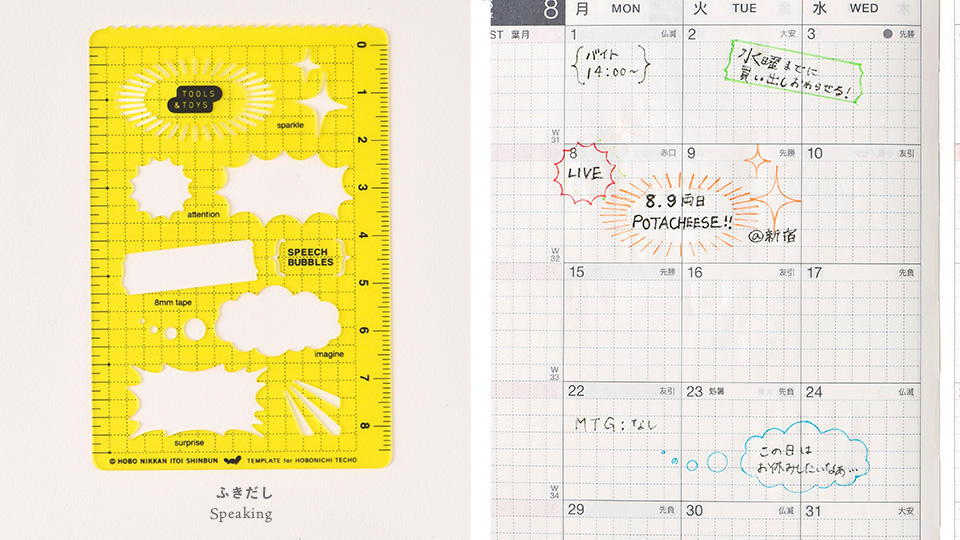 0
TOOLS
&TOYS
1
sparkle
2
3
attention
4
SPEECH
BUBBLES
5
8mm tape
6
imagine
7
8
surprise
© HOBO NIKKAN ITOI SHINBUN TEMPLATE for HOBONICHI TECHO
ふきだし
Speaking
8 月 MON 火 TUE 水 WED
ST 葉月
1 仏滅
バイト
14:00~
2 大安
水曜までに
買い出しおわらせる!
3 先勝
W
31
8 赤口
LIVE
9 先勝
8.9両日
POTACHEESE!!
@新宿
10 友引
W
32
15 先勝
16 友引
17 先負
W
33
22 友引
MTG:なし
23 処暑 先負
24 仏滅
この日は
お休みしたいなぁ…
W
34
29 先負
30 仏滅
31 大安